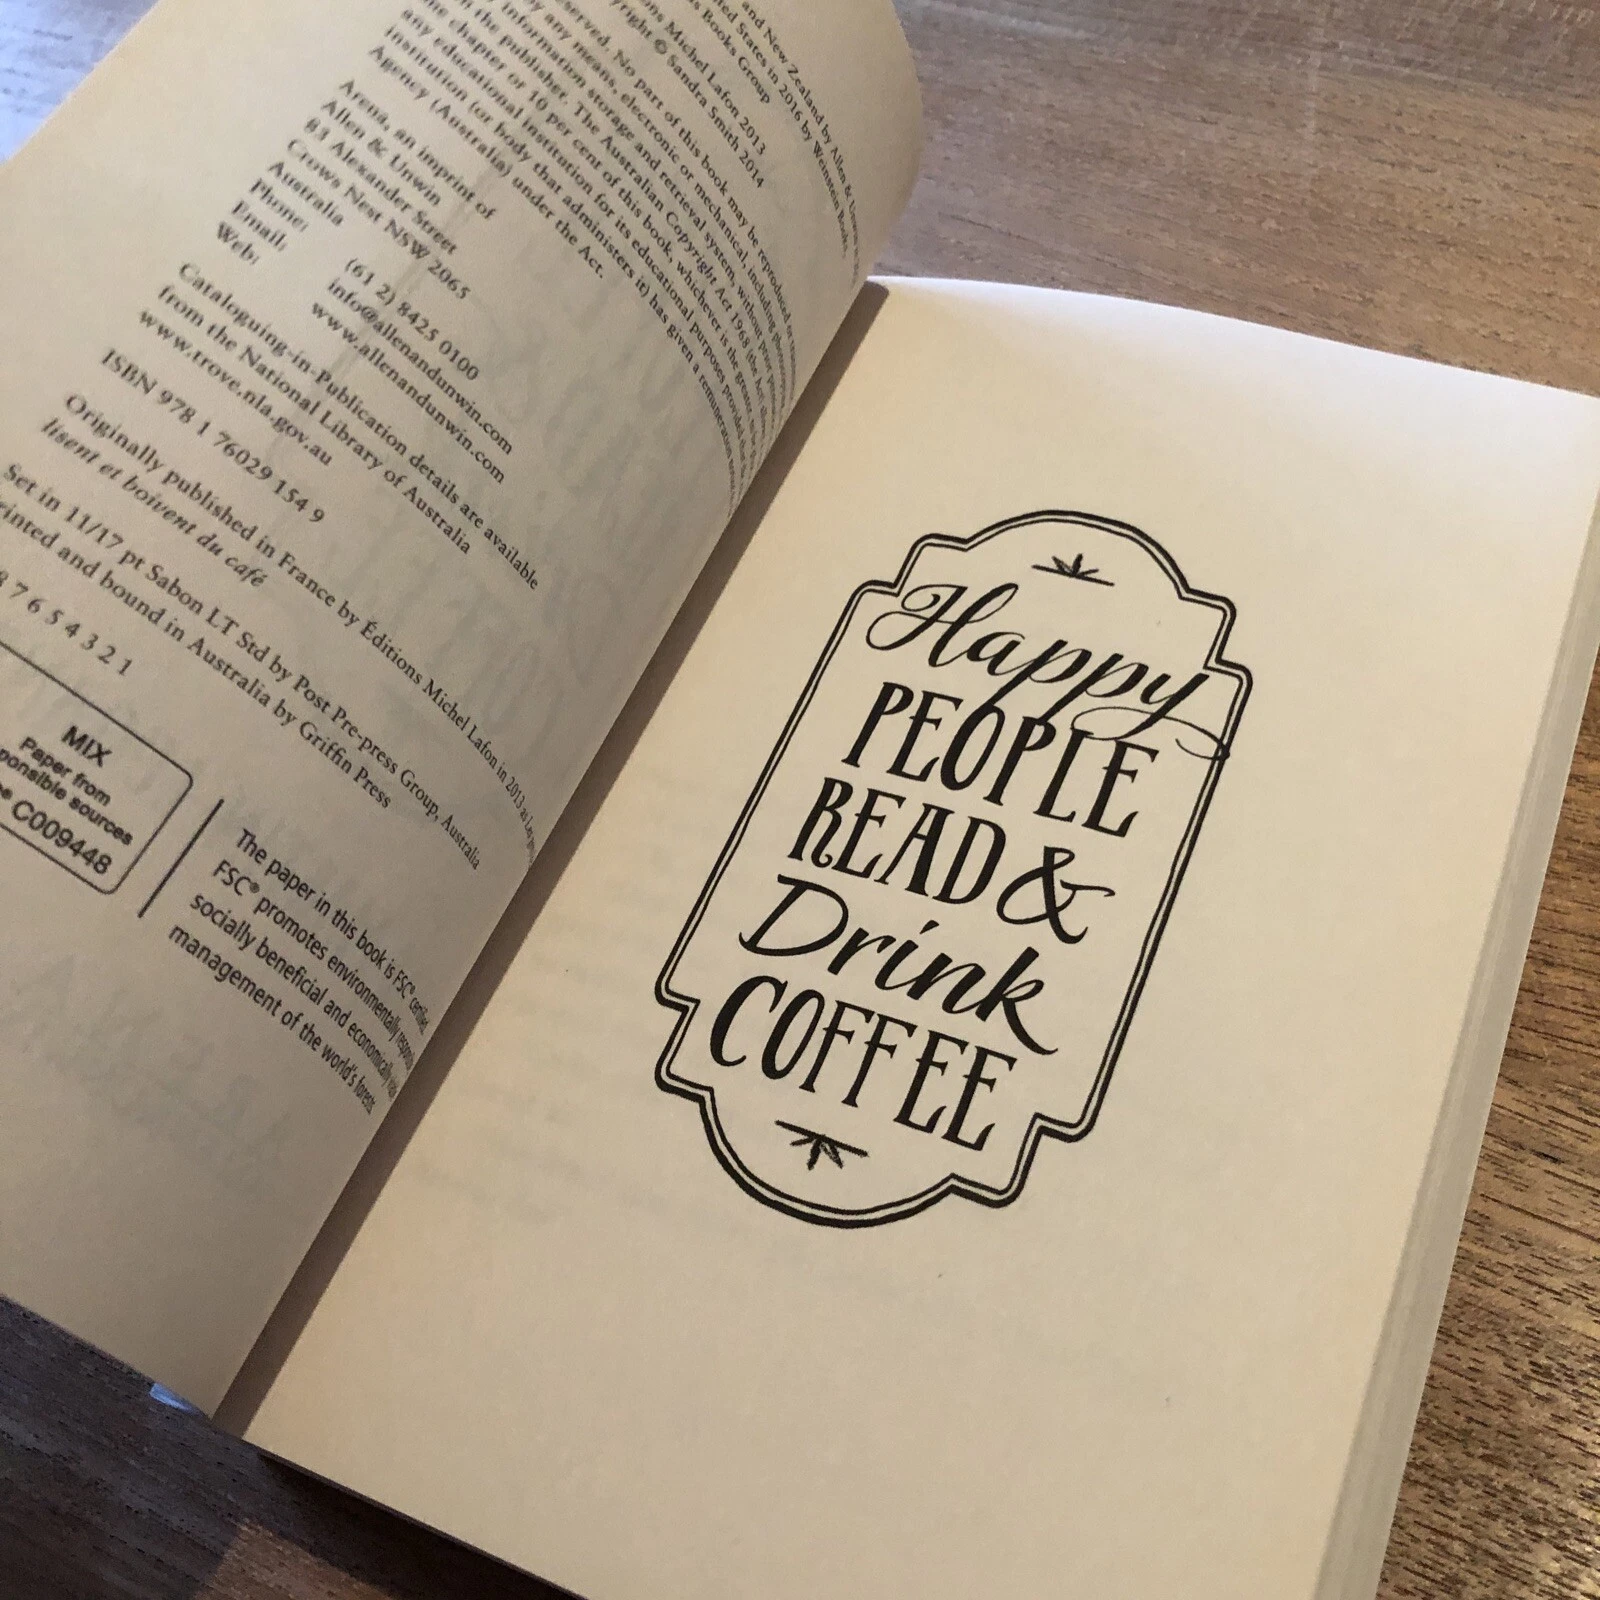 and New Zealand by Allen & Unwin
United States in 2016 by Weinstein Books,
Books Group
Michel Lafon 2013
© Sandra Smith 2014
reserved. No part of this book may be reproduced or
by any means, electronic or mechanical, including
information storage and retrieval system, without prior
the publisher. The Australian Copyright Act 1968 (the Act)
one chapter or 10 per cent of this book, whichever is the greater, to be
any educational institution for its educational purposes provided that
institution (or body that administers it) has given a remuneration
Agency (Australia) under the Act.
Arena, an imprint of
Allen & Unwin
83 Alexander Street
Crows Nest NSW 2065
Australia
Phone: (61 2) 8425 0100
Email: info@allenandunwin.com
Web: www.allenandunwin.com
Cataloguing-in-Publication details are available
from the National Library of Australia
www.trove.nla.gov.au
ISBN 978 1 76029 154 9
Originally published in France by Éditions Michel Lafon in 2013 as Les
lisent et boivent du café
Set in 11/17 pt Sabon LT Std by Post Pre-press Group, Australia
Printed and bound in Australia by Griffin Press
8 7 6 5 4 3 2 1
MIX
Paper from
responsible sources
C009448
The paper in this book is FSC® certified.
FSC® promotes environmentally
socially beneficial and economically
management of the world's forests
Happy
PEOPLE
READ &
Drink
COFFEE